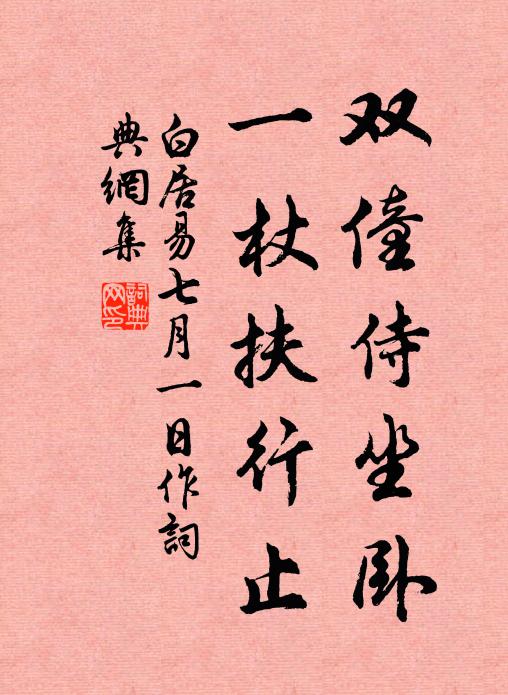 双僮侍坐卧
一杖扶行止
白居易七月一日作詞
典網集
詞典网印